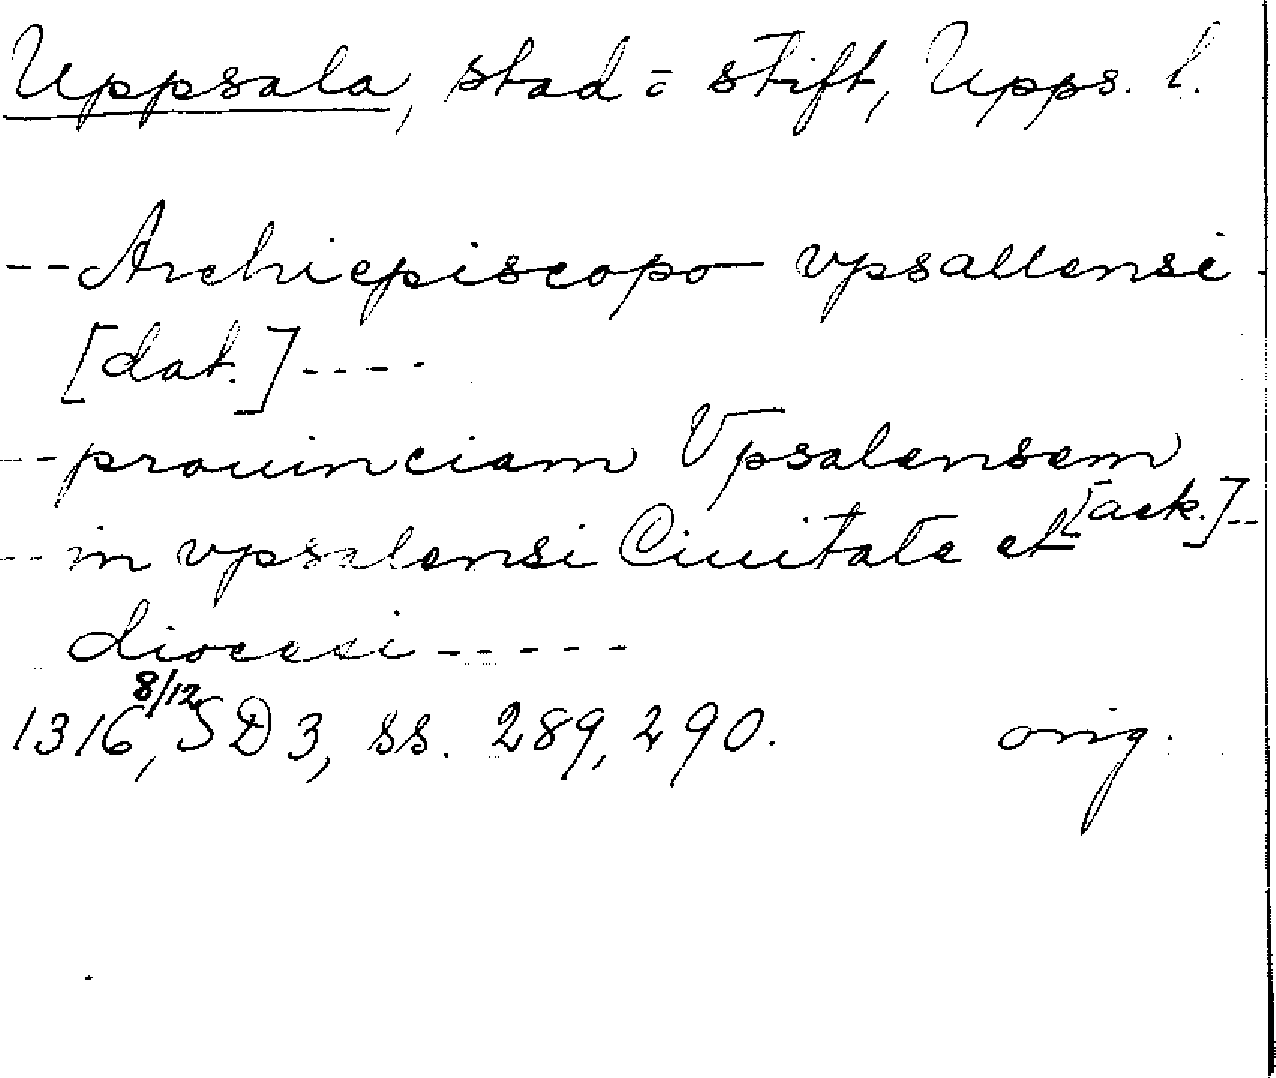 Uppsala, stad = stift, Upps. l.
--Archiepiscopo vpsallensi -
[dat.]----
--prouinciam Vpsalensem
--in vpsalensi Ciuitate et [ack.]--
diocesi-----
1316 8/12, SD 3, ss. 289, 290. orig.